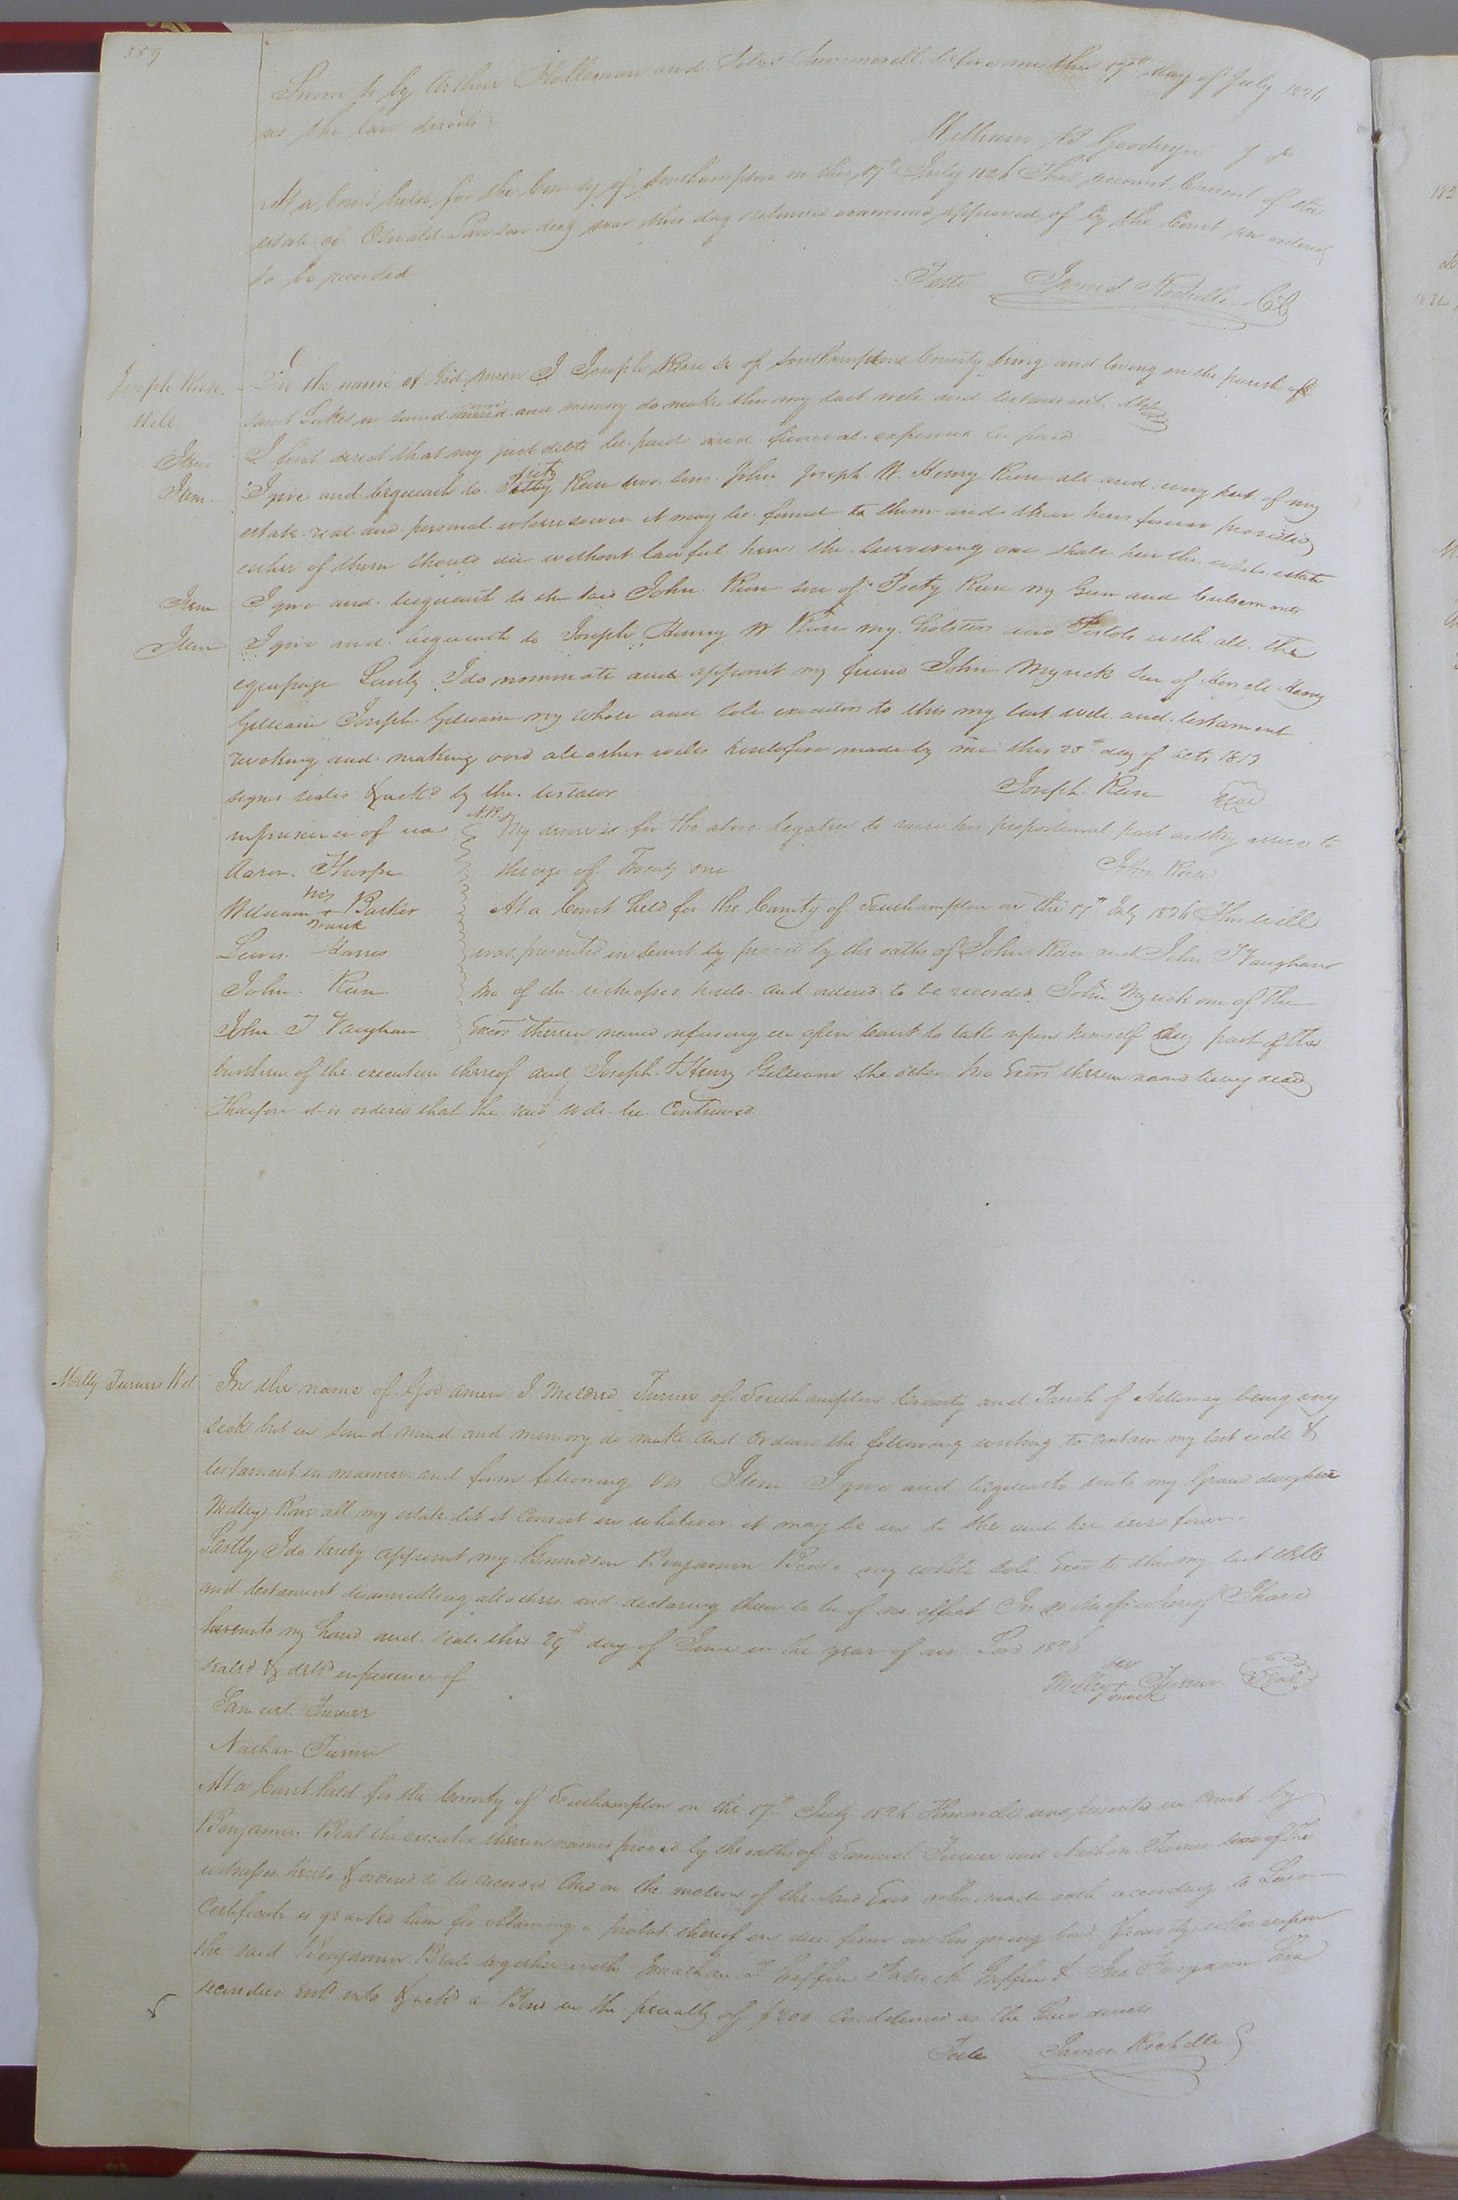 359
Sworn to by Arthur Holleman and Summerell before me this 17th day of July 1826
as the law directs
William B Goodwyn J P
At a Court held for the County of Southampton on the 17th July 1826 This account Current of the
estate of Oswald Lawson decd was this day returned examined approved of by the Court and ordered
to be recorded
Teste James Rochelle Clk
Joseph
Will
In the name of God amen I Joseph Sr of Southampton County being and living in the parish of
Saint Lukes in sound mind and memory do make this my last will and testament
Item I first direct that my just debts be paid and funeral expenses be paid
Item I give and bequeath to Piety two sons John Joseph W Henry all and every part of my
estate real and personal wheresoever it may be found to them and their heirs forever provided
either of them should die without lawful heirs the surviving one shall heir the whole estate
Item I give and bequeath to the said John son of Piety my Gun and
Item I give and bequeath to Joseph Henry W my holsters and Pistols with all the
equipage Lastly I do nominate and appoint my friend John Myrick son of Henry
Gilliam Joseph Gilliam my whole and sole executors to this my last will and testament
revoking and making void all other wills heretofore made by me this 20th day of 1813
signed sealed & ackd by the testator Joseph Seal
in presence of us N.B. My desire is for the above legatees to their proportional part as they arrive to
Aaron Tharpe the age of Twenty one John
William his + mark Barker At a Court held for the County of Southampton on the 17th July 1826 This will
Lewis Harris was presented in Court & proved by the oaths of John and John T Vaughan
John two of the witnesses hereto and ordered to be recorded John Myrick one of the
John T Vaughan Exors therein named refusing in open Court to take upon himself any part of the
burthen of the execution thereof and Joseph & Henry Gilliam the other two Exors therein named being dead
Therefore it is ordered that the said will be Continued
Milly Turners Will
In the name of God amen I Mildred Turner of Southampton County and Parish of Nottoway being very
sick but in sound mind and memory do make and ordain the following writing to contain my last will &
testament in manner and form following Viz Item I give and bequeath unto my Grand daughter
Milley all my estate let it Consist in whatever it may be in to her and her heirs forever
Lastly I do hereby appoint my Grandson Benjamin my whole sole Exor to this my last will
and testament disannulling all others and declaring them to be of no effect In witness whereof I have
hereunto my hand and seal this 29th day of June in the year of our Lord 1826
sealed & deld in presence of Milley her + mark Turner Seal
Samuel Turner
Nathan Turner
At a Court held for the County of Southampton on the 17th July 1826 This will was presented in Court by
Benjamin Beal the executor therein named proved by the oaths of Samuel Turner and Nathan Turner two of the
witnesses hereto & ordered to be recorded And on the motion of the said Exor who made oath according to Law
Certificate is granted him for obtaining a probat thereof in due form on his giving bond & security whereupon
the said Benjamin Beal together with Jonathan T Griffin Patrick Griffin & Ferguson his
securities entd into & ackd a Bond in the penalty of $200 Conditioned as the Law directs
Teste James Rochelle C